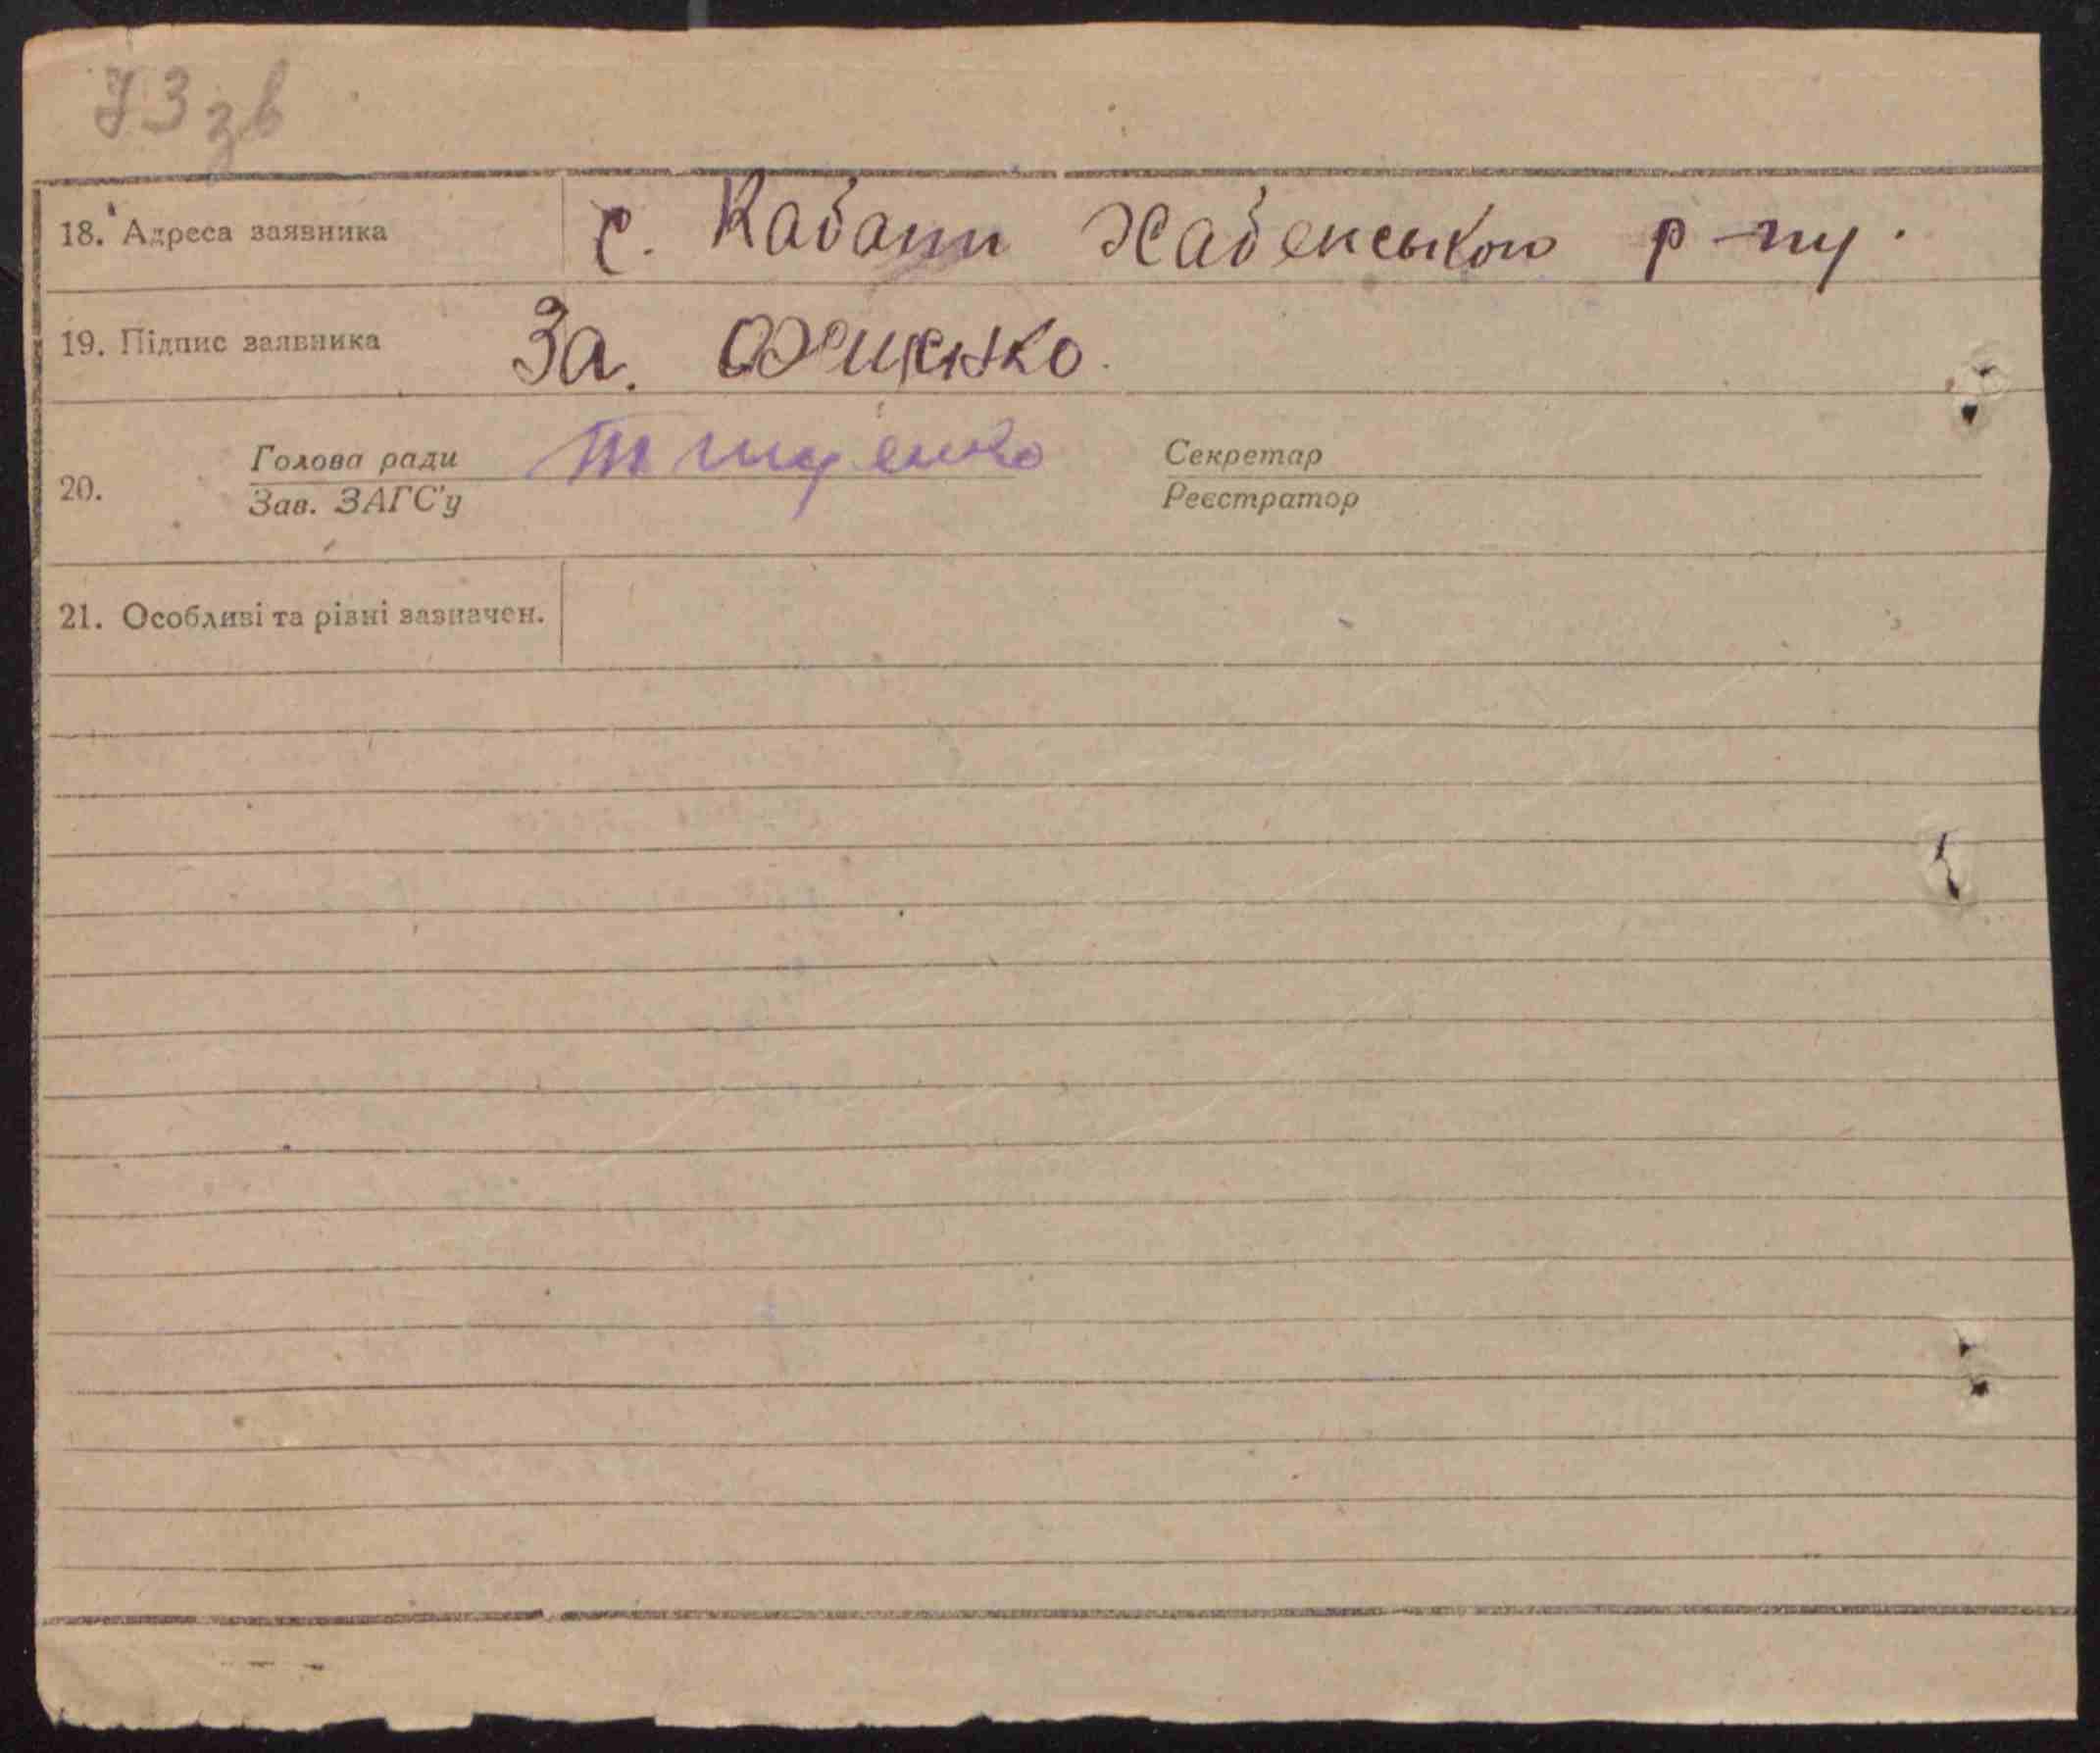 73 зв
18. Адреса заявника с. Кабани Хабенського р-ну.
19. Підпис заявника За.
20. Голова ради Тищенко Секретар
Зав. ЗАГС'у Реєстратор
21. Особливі та різні зазначен.